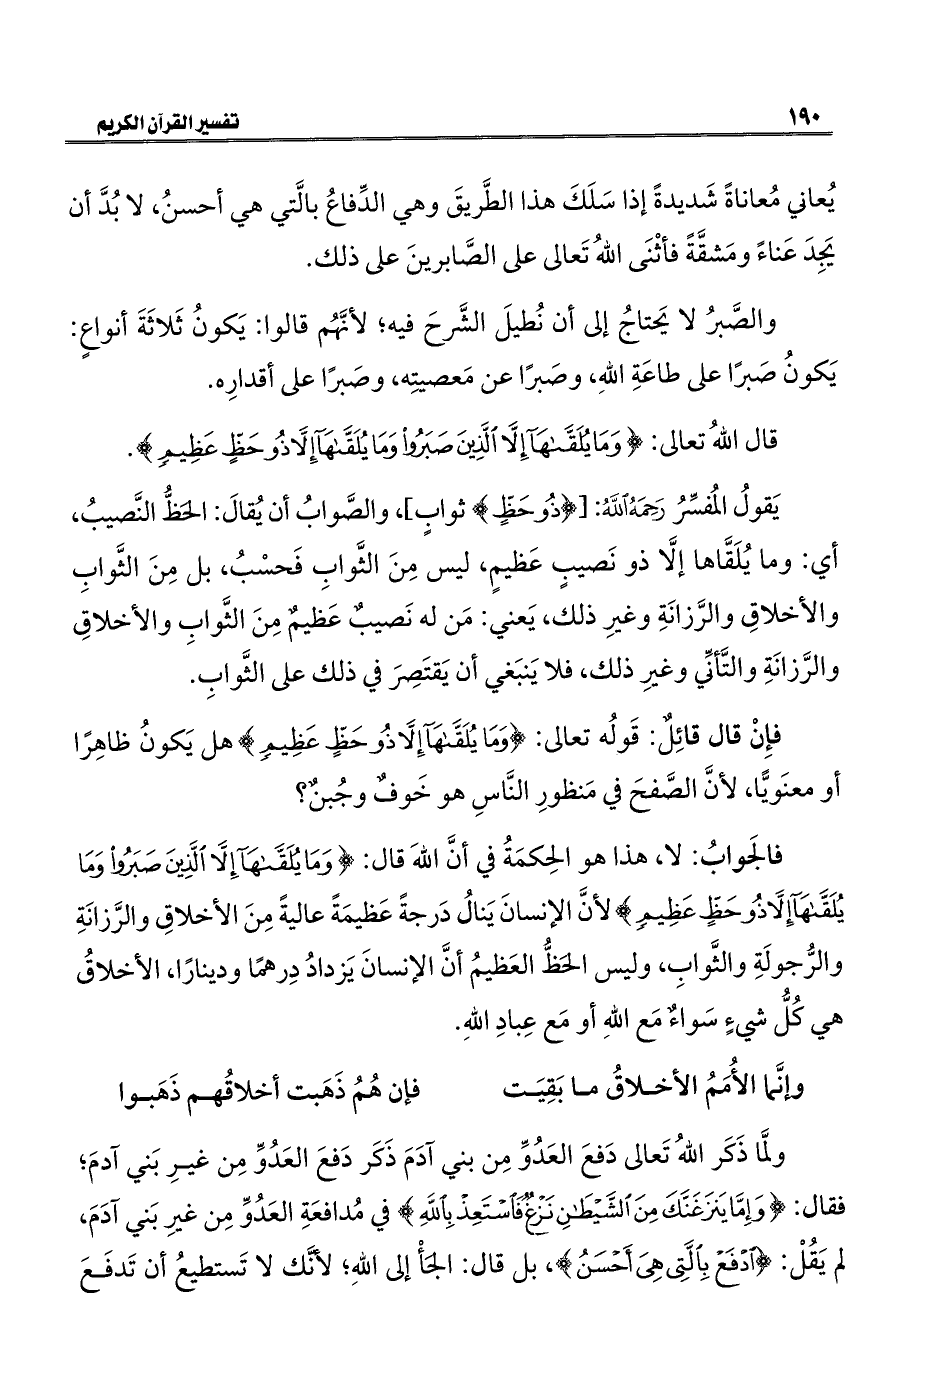 ١٩٠
تفسير القرآن الكريم
يُعاني مُعاناةً شَديدةً إذا سَلَكَ هذا الطَّريقَ وهي الدِّفاعُ بالَّتي هي أحسنُ، لا بُدَّ أن
يَجِدَ عَناءً ومَشقَّةً فأثْنَى اللهُ تَعالى على الصَّابرينَ على ذلك.
والصَّبرُ لا يَحتاجُ إلى أن نُطيلَ الشَّرحَ فيه؛ لأنَّهُم قالوا: يَكونُ ثَلاثَةَ أنواعٍ:
يَكونُ صَبرًا على طاعَةِ اللهِ، وصَبرًا عن مَعصيتِه، وصَبرًا على أقدارِه.
قال اللهُ تعالى: ﴿وَمَا يُلَقَّىٰهَآ إِلَّا ٱلَّذِينَ صَبَرُوا۟ وَمَا يُلَقَّىٰهَآ إِلَّا ذُو حَظٍّ عَظِيمٍ﴾.
يَقولُ المُفسِّرُ رَحِمَهُ ٱللَّهُ: [﴿ذُو حَظٍّ﴾ ثوابٍ]، والصَّوابُ أن يُقالَ: الحَظُّ النَّصيبُ،
أي: وما يُلَقَّاها إلَّا ذو نَصيبٍ عَظيمٍ، ليس مِنَ الثَّوابِ فَحسْبُ، بل مِنَ الثَّوابِ
والأخلاقِ والرَّزانَةِ وغيرِ ذلك، يَعني: مَن له نَصيبٌ عَظيمٌ مِنَ الثَّوابِ والأخلاقِ
والرَّزانَةِ والتَّأنِّي وغيرِ ذلك، فلا يَنبَغي أن يَقتَصِرَ في ذلك على الثَّوابِ.
فإنْ قال قائِلٌ: قَولُه تعالى: ﴿وَمَا يُلَقَّىٰهَآ إِلَّا ذُو حَظٍّ عَظِيمٍ﴾ هل يَكونُ ظاهِرًا
أو معنَويًّا، لأنَّ الصَّفحَ في مَنظورِ النَّاسِ هو خَوفٌ وجُبنٌ؟
فالجَوابُ: لا، هذا هو الحِكمَةُ في أنَّ اللهَ قال: ﴿وَمَا يُلَقَّىٰهَآ إِلَّا ٱلَّذِينَ صَبَرُوا۟ وَمَا
يُلَقَّىٰهَآ إِلَّا ذُو حَظٍّ عَظِيمٍ﴾ لأنَّ الإنسانَ يَنالُ دَرجةً عَظيمَةً عاليةً مِنَ الأخلاقِ والرَّزانَةِ
والرُّجولَةِ والثَّوابِ، وليس الحَظُّ العَظيمُ أنَّ الإنسانَ يَزدادُ دِرهمًا ودينارًا، الأخلاقُ
هي كُلُّ شيءٍ سَواءٌ مَع اللهِ أو مَع عِبادِ اللهِ.
وإنَّما الأُمَمُ الأخلاقُ ما بَقِيَت فإن هُمُ ذَهَبت أخلاقُهم ذَهَبوا
ولمَّا ذَكَر اللهُ تَعالى دَفعَ العَدُوِّ مِن بني آدَمَ ذَكَر دَفعَ العَدُوِّ مِن غيرِ بَني آدمَ؛
فقال: ﴿وَإِمَّا يَنزَغَنَّكَ مِنَ ٱلشَّيْطَٰنِ نَزْغٌ فَٱسْتَعِذْ بِٱللَّهِ﴾ في مُدافعَةِ العَدُوِّ مِن غيرِ بَني آدَمَ،
لم يَقُلْ: ﴿ٱدْفَعْ بِٱلَّتِي هِيَ أَحْسَنُ﴾، بل قال: الجَأْ إلى اللهِ؛ لأنَّك لا تَستطيعُ أن تَدفَعَ